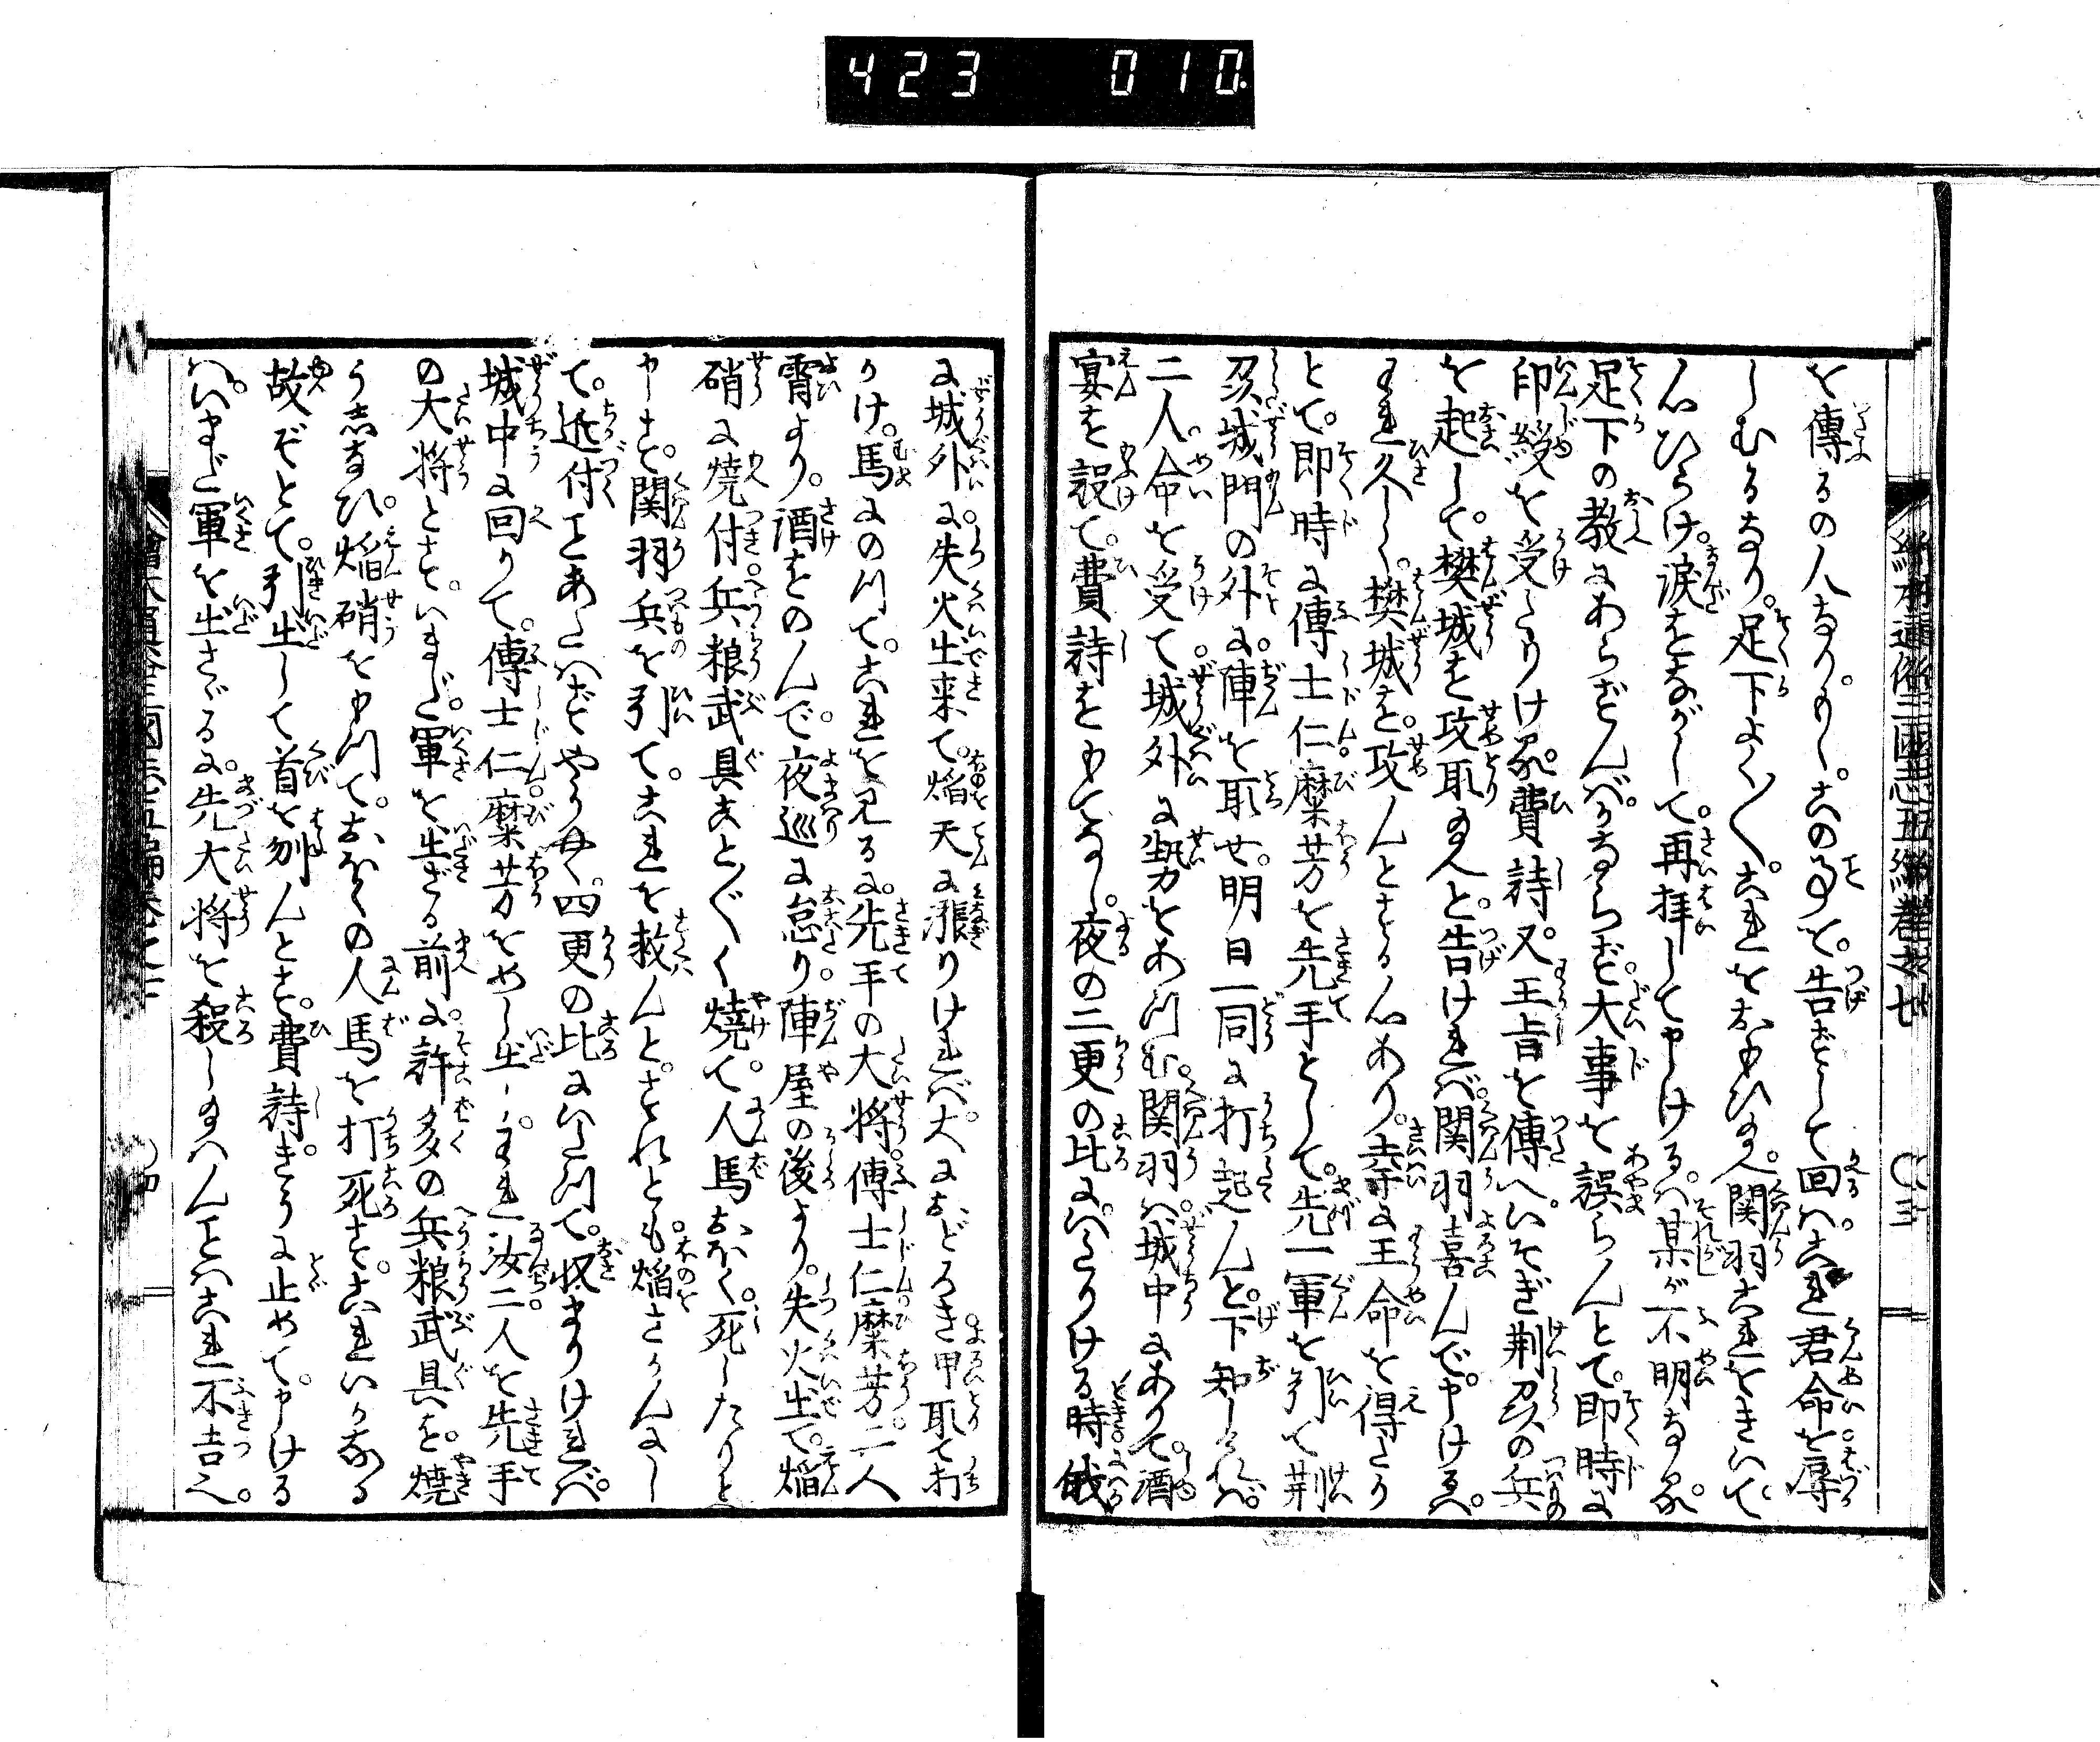 423 010
を傳るの人なり。もし。この事を。告ずして回ば。これ君命を辱
しむるなり。足下よく〳〵。これをおもひ給へ。関羽これをきいて
心ひらけ。涙をながして。再拝して申けるハ某が不明なる。
足下の教にあらずんバ。かならず大事を誤らんとて。即時に
印綬を受たりける。費詩又王旨を傳へ。いそぎ荆州の兵
を起して。樊城を攻取給へと。告けれバ関羽喜んで。申けるハ。
われ久しく。樊城を。攻んとする心あり。幸に王命を得たり
とて。即時に傅士仁。糜芳を先手として。先一軍を引て荆
州城門の外に。陣を取せ。明日一同に打起んと。下知しけれバ。
二人。命を受て。城外に勢をあつむ。関羽ハ。城中にありて。酒
宴を設て。費詩をもてなし。夜の二更の比に。いたりける時。俄
に城外に。失火出来て。焰天に漲りけれバ。大におどろき。甲取て打
かけ。馬にのつて。これを見るに。先手の大将。傅士仁。糜芳。二人
宵より。酒をのんで。夜巡に怠り。陣屋の後より。失火出て。焰
硝に燒付。兵粮武具ことごとく燒て。人馬おほく。死したりと
申す。関羽兵を引て。これを救んと。すれども。焰さかんにし
て。近付ことあたはず。やうやく四更の比にいたつて。収まりけれバ。
城中に回りて。傅士仁。糜芳をめし出し。われ汝二人を先手
の大将とす。いまだ。軍を出ざる前に。許多の兵粮武具を。燒
うしなひ。焰硝をもつて。おほくの人馬を打死す。これいかなる
故ぞとて。引出して首を刎んとす。費詩。きうに止めて。申ける
ハ。いまだ軍を出さゞるに。先大将を殺し給ハんことハこれ不吉也。
絵本通俗三國志五編巻之廿
〇三